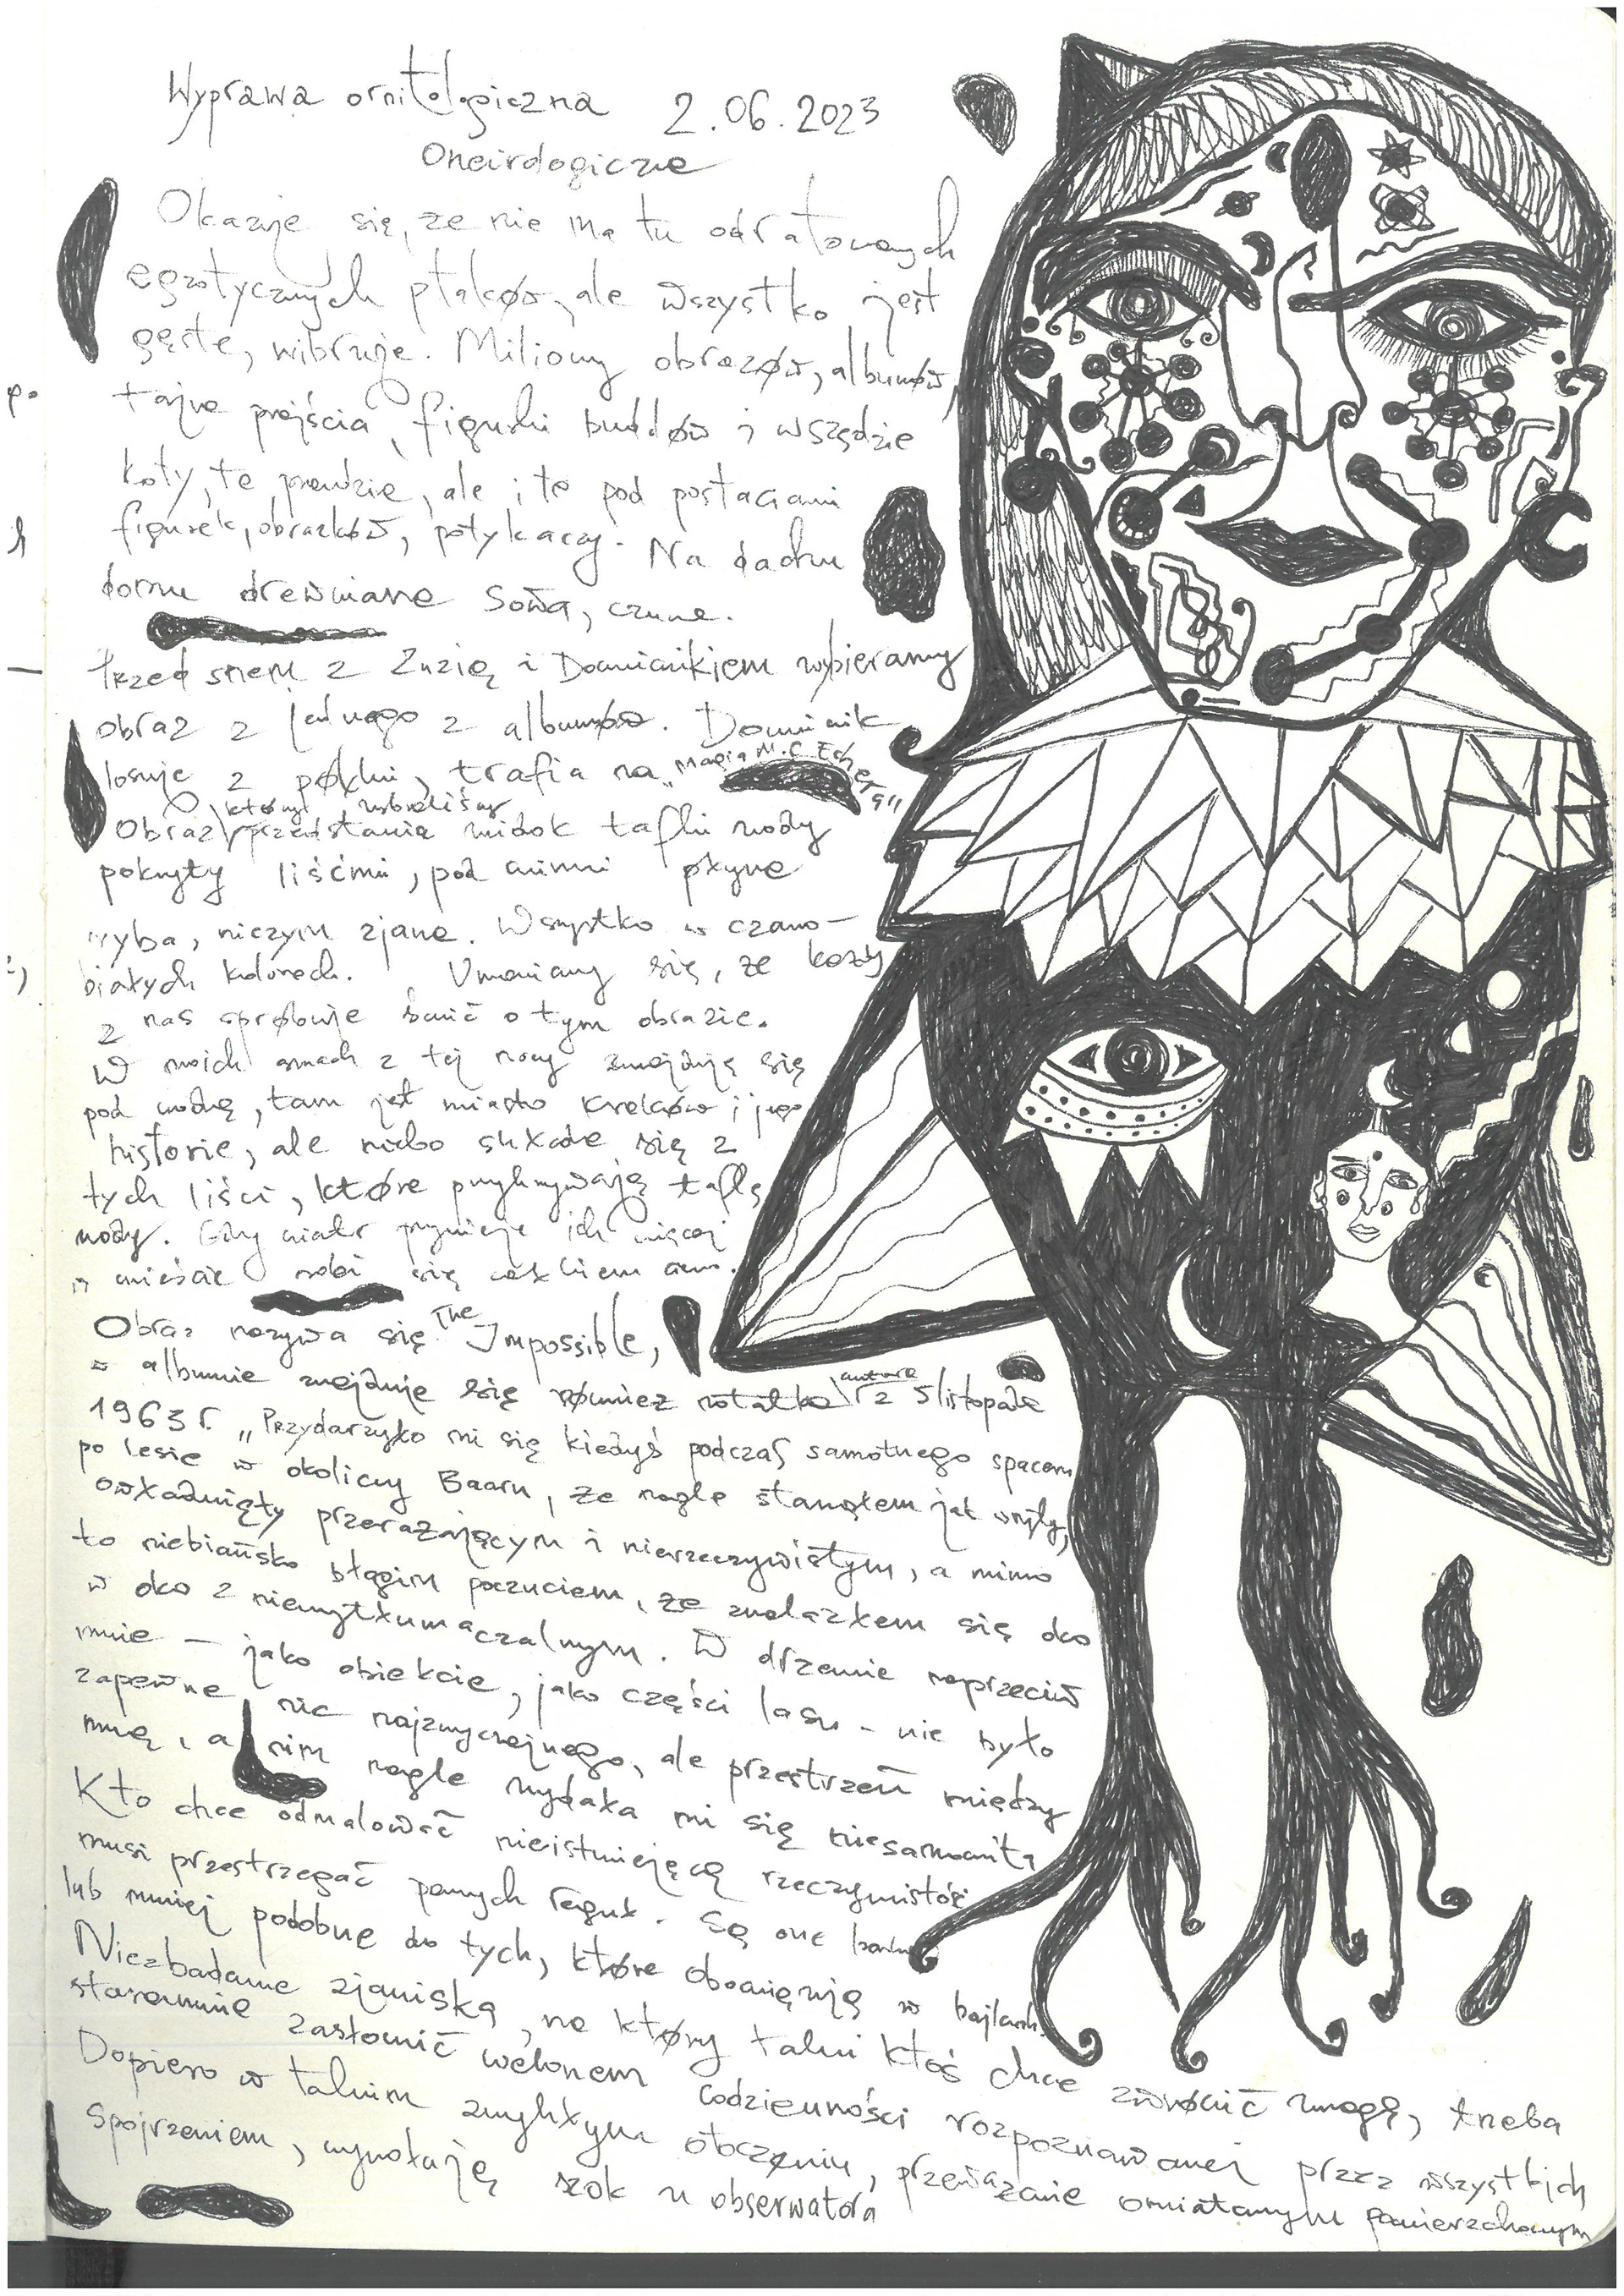 Wyprawa ornitologiczna 2.06.2023
Oneirologiczne
Okazuje się, że nie ma tu odratowanych
egzotycznych ptaków, ale wszystko jest
gęste, wibruje. Miliony obrazów, albumów,
tajne przejścia, figurki buddów i wszędzie
koty, te prawdzie, ale i te pod postaciami
figurek, obrazków, potykaczy. Na dachu
domu drewniane sowa, czuwa.
Przed snem z Zuzią i Dominikiem wybieramy
obraz z jednego z albumów. Dominik
losuje z półki, trafia na "Magia M.C. Eschera"
Obraz który wybraliśmy przedstawia widok tafli wody
pokryty liśćmi, pod nimi płynie
ryba, niczym zjawa. Wszystko w czarno-
białych kolorach. Umawiamy się, że każdy
z nas spróbuje śnić o tym obrazie.
W moich snach z tej nocy znajduję się
pod wodą, tam jest miasto Kraków i jego
historie, ale niebo składa się z
tych liści, które przykrywają taflę
wody. Gdy wiatr przywieje ich więcej
w mieście robi się całkiem
Obraz nazywa się The Impossible,
w albumie znajduje się również notatka autora z 5 listopada
1963 r. „Przydarzyło mi się kiedyś podczas samotnego spaceru
po lesie w okolicy Baarn, że nagle stanąłem jak wryty,
owładnięty przerażającym i nierzeczywistym, a mimo
to niebiańsko błogim poczuciem, że znalazłem się oko
w oko z niewytłumaczalnym. W drzewie naprzeciw
mnie – jako obiekcie, jako części lasu – nie było
zapewne nic nadzwyczajnego, ale przestrzeń między
mną, a nim nagle wydała mi się niesamowita
Kto chce odmalować nieistniejącą rzeczywistość
musi przestrzegać pewnych reguł. Są one bardziej
lub mniej podobne do tych, które obowiązują w bajkach.
Niezbadane zjawiska, na który taki ktoś chce zwrócić uwagę, trzeba
starannie zasłonić welonem codzienności rozpoznawanej przez wszystkich
Dopiero w takim zwykłym otoczeniu, przeważanie omiatanym powierzchownym
spojrzeniem, wywołają szok u obserwatora